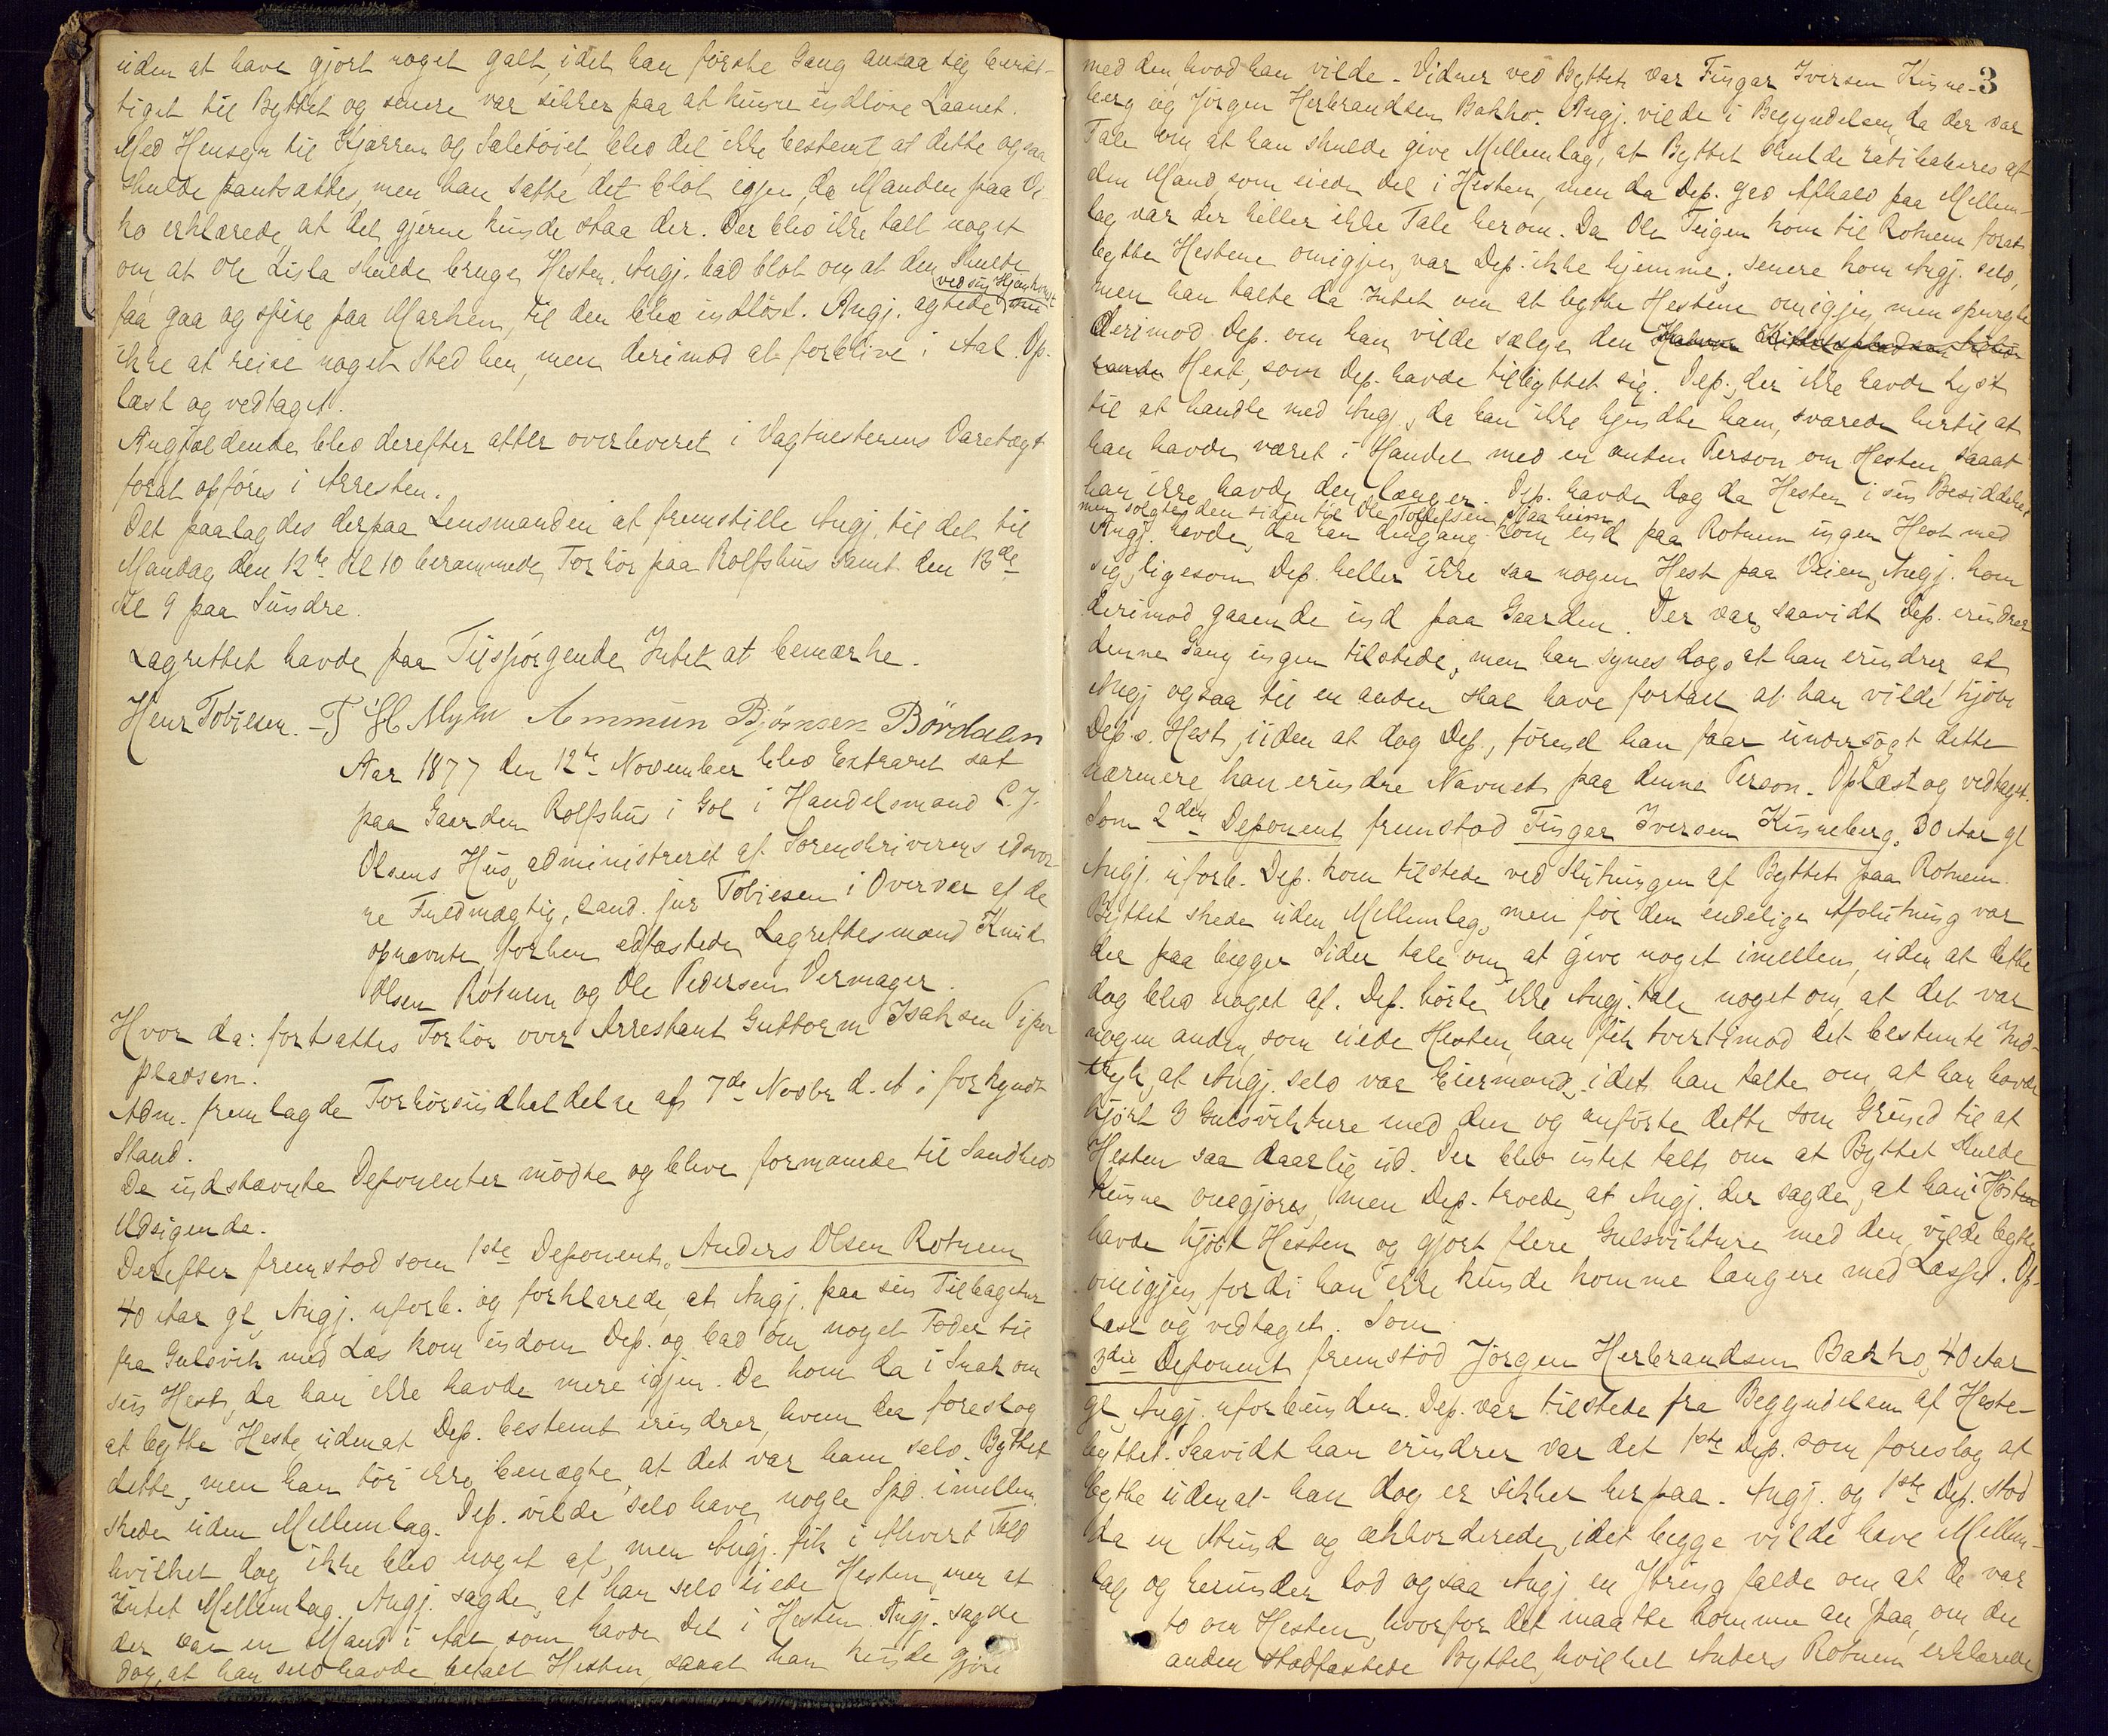 uden at have gjort noget galt, idet han første Gang ansaa sig beret-
tiget til Byttet og senere var sikker paa at kunne indløse Laanet.
Med Hensyn til Kjærren og Seletøiet blev det ikke bestemt at dette ogsaa
skulde pantsættes, men han satte det blot igjen, da Manden paa
ko erklærede, at det gjerne kunde staa der. Der blev ikke talt noget
om, at Ole Lisla skulde bruge Hesten. Angj. bad blot om at den skulde
faa gaa og spise paa Marken, til den blev indløst. Angj. agtede ved sin Hjemkomst
ikke at reise noget Sted hen, men derimod at forblive i Aal. Op-
læst og vedtaget.
Angjældende blev derefter atter overleveret i Vagtmesterens Varetægt
forat opføres i Arresten.
Det paalagdes derpaa Lensmanden at fremstille Angj. til det til
Mandag den 12te Kl 10 berammede Forhør paa Rolfshus samt den 13de
Kl 9 paa Sundre.
Lagrettet havde paa Tilspørgende Intet at bemærke.
Henr Tobiesen. - T H Myhr Ammun Bjørnsen Børdalen
Aar 1877 den 12te November blev Extraret sat
paa Gaarden Rolfshus i Gol i Handelsmand C. J.
Olsens Hus, administreret af Sorenskriverens edsvor-
ne Fuldmægtig, cand. jur Tobiesen i Overvær af de
opnævnte forhen edfæstede Lagrettesmænd Knud
Olsen Rotnem og Ole Pedersen Vermager.
Hvor da: fortsattes Forhør over Arrestant Guttorm Isaksen
pladsen.
Adm. fremlagde Forhørsindkaldelse af 7de Novbr d. A i forkyndt
Stand.
De indstævnte Deponenter mødte og bleve formanede til Sandheds
Udsigende.
Derefter fremstod som 1ste Deponent, Anders Olsen Rotnem
40 Aar gl, Angj. uforb. og forklarede, at Angj. paa sin Tilbagetur
fra Gulsvik med Læs kom indom Dep. og bad om noget Foder til
sin Hest, da han ikke havde mere igjen. De kom da i Snak om
at bytte Heste, uden at Dep. bestemt erindrer, hvem der foreslog
dette, men han tør ikke benægte, at det var ham selv. Byttet
skede uden Mellemlag. Dep. vilde selv have nogle Spd. imellem
hvilket dog ikke blev noget af, men Angj. fik i Ahvert Fald
Intet Mellemlag. Angj. sagde, at han selv eiede Hesten, men at
der var en Mand i Aal, som havde Del i Hesten. Angj. sagde
dog, at han selv havde betalt Hesten, saaat han kunde gjøre
3
med den hvad han vilde. Vidner ved Byttet var Fingar Iversen Kinne-
berg og Jørgen Herbrandsen Bakko. Angj. vilde i Begyndelsen, da der var
Tale om at han skulde give Mellemlag, at Byttet skulde ratihaberes af
den Mand som eiede Del i Hesten, men da Dep. gav Afkald paa Mellem-
lag var der heller ikke Tale herom. Da Ole Teigen kom til Rotnem forat
bytte Hestene omigjen, var Dep. ikke hjemme. Senere kom Angj. selv,
men han talte da Intet om at bytte Hestene omigjen men spurgte
derimod Dep. om han vilde sælge den
Hest, som Dep. havde tilbyttet sig. Dep., der ikke havde Lyst
til at handle med Angj., da han ikke kjendte ham, svarede hertil at
han havde været i Handel med en anden Person om Hesten, saaat
han ikke havde den længer. Dep. havde dog da Hesten i sin Besiddelse,
men solgte den siden til Ole Tollefsen
Angj. havde, da han dengang kom ind paa Rotnem ingen Hest med
sig, ligesom Dep. heller ikke saa nogen Hest paa Veien, Angj. kom
derimod gaaende ind paa Gaarden. Der var, saavidt Dep. erindrer
denne Gang ingen tilstede, men han synes dog, at han erindrer, at
Angj ogsaa til en anden skal have fortalt, at han vilde kjøbe
Dep.s. Hest, uden at dog Dep., førend han faar undersøgt dette
nærmere kan erindre Navnet paa denne Person. Oplæst og vedtaget.
Som 2den Deponent fremstod Fingar Iversen Kinneberg, 30 Aar gl
Angj. uforb. Dep. kom tilstede ved Slutningen af Byttet paa Rotnem.
Byttet skede uden Mellemlag, men før den endelige Afslutning var
der paa begge Sider tale om, at give noget imellem, uden at dette
dog blev noget af. Dep. hørte ikke Angj. tale noget om, at det var
nogen anden, som eiede Hesten, han fik tvertimod det bestemte Ind-
tryk, at Angj. selv var Eiermand, idet han talte om, at han havde
kjørt 3 Gulsvikture med den og anførte dette som Grund til at
Hesten saa daarlig ud. Der blev intet talt om at Byttet skulde
kunne omgjøres, men Dep. troede, at Angj. der sagde, at han i Høst
havde kjøbt Hesten og gjort flere Gulsvikture med den, vilde bytte
omigjen, fordi han ikke kunde komme længere med Læsset. Op-
læst og vedtaget. Som
3die Deponent fremstod Jørgen Herbrandsen Bakko, 40 Aar
gl, Angj. uforbunden. Dep. var tilstede fra Begyndelsen af Heste-
byttet. Saavidt han erindrer var det 1ste Dep. som foreslog at
bytte uden at han dog er sikker herpaa. Angj. og 1ste Dep. stod
da en Stund og akkorderede, idet begge vilde have Mellem-
lag og herunder lod ogsaa Angj en Ytring falde om at de var
to om Hesten, hvorfor det maatte komme an paa, om den
anden stadfæstede Byttet, hvilket Anders Rotnem erklærede